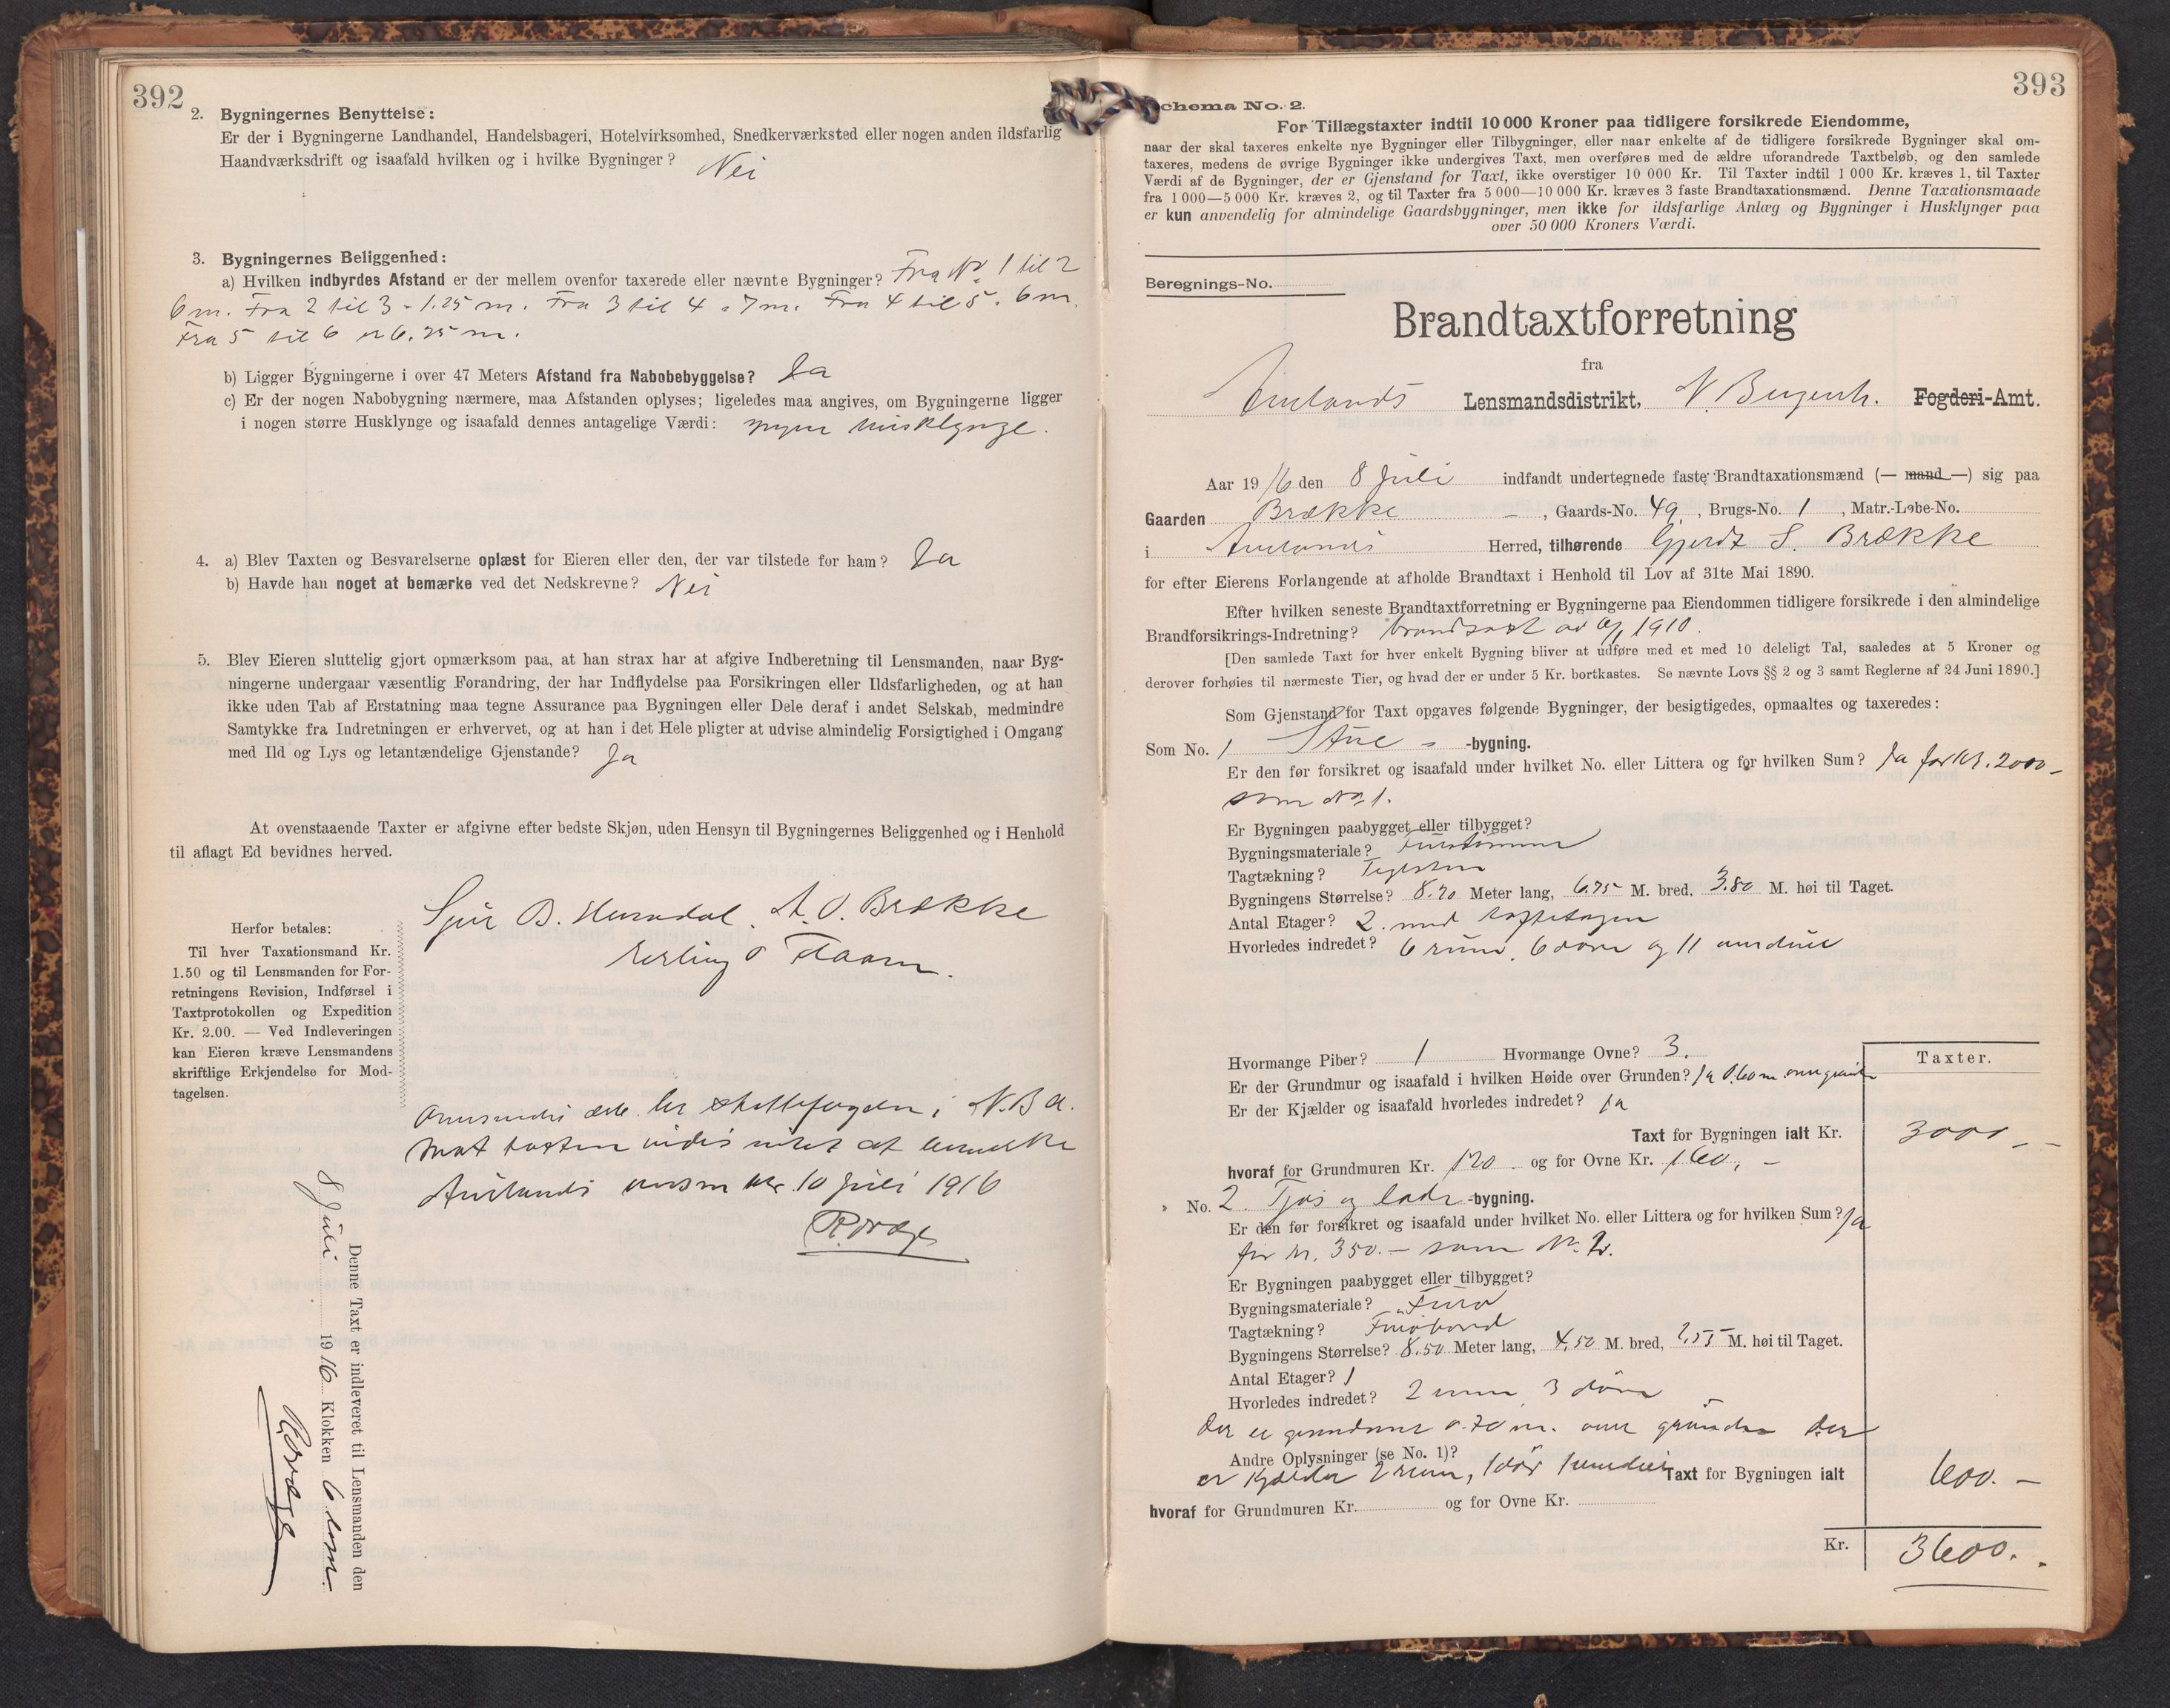 392
2. Bygningernes Benyttelse:
Er der i Bygningerne Landhandel, Handelsbageri, Hotelvirksomhed, Snedkerværksted eller nogen anden ildsfarlig
Haandværksdrift og isaafald hvilken og i hvilke Bygninger? Nei
3. Bygningernes Beliggenhed:
a) Hvilken indbyrdes Afstand er der mellem ovenfor taxerede eller nævnte Bygninger? Fra No 1 til 2
6 m. Fra 2 til 3 = 1.25 m. Fra 3 til 4 = 7 m. Fra 4 til 5 = 6 m.
Fra 5 til 6 er 6.25 m.
b) Ligger Bygningerne i over 47 Meters Afstand fra Nabobebyggelse? Ja
c) Er der nogen Nabobygning nærmere, maa Afstanden oplyses; ligeledes maa angives, om Bygningerne ligger
i nogen større Husklynge og isaafald dennes antagelige Værdi: ingen husklynge.
4. a) Blev Taxten og Besvarelserne oplæst for Eieren eller den, der var tilstede for ham? Ja
b) Havde han noget at bemærke ved det Nedskrevne? Nei
5. Blev Eieren sluttelig gjort opmærksom paa, at han strax har at afgive Indberetning til Lensmanden, naar Byg-
ningerne undergaar væsentlig Forandring, der har Indflydelse paa Forsikringen eller Ildsfarligheden, og at han
ikke uden Tab af Erstatning maa tegne Assurance paa Bygningen eller Dele deraf i andet Selskab, medmindre
Samtykke fra Indretningen er erhvervet, og at han i det Hele pligter at udvise almindelig Forsigtighed i Omgang
med Ild og Lys og letantændelige Gjenstande? Ja
At ovenstaaende Taxter er afgivne efter bedste Skjøn, uden Hensyn til Bygningernes Beliggenhed og i Henhold
til aflagt Ed bevidnes herved.
Sjur B. A. O. Brække
Erling O Flaam.
Herfor betales:
Til hver Taxationsmand Kr.
1.50 og til Lensmanden for For-
retningens Revision, Indførsel i
Taxtprotokollen og Expedition
Kr. 2.00. — Ved Indleveringen
kan Eieren kræve Lensmandens
skriftlige Erkjendelse for Mod-
tagelsen.
Oversendes hr skattefogden i N.B.a.
Mot taxten vides intet at bemerke
Aurlands 10 juli 1916
Denne Taxt er indleveret til Lensmanden den
8 Juli 1916 Klokken 6 em.
393
Schema No. 2.
For Tillægstaxter indtil 10 000 Kroner paa tidligere forsikrede Eiendomme,
naar der skal taxeres enkelte nye Bygninger eller Tilbygninger, eller naar enkelte af de tidligere forsikrede Bygninger skal om-
taxeres, medens de øvrige Bygninger ikke undergives Taxt, men overføres med de ældre uforandrede Taxtbeløb, og den samlede
Værdi af de Bygninger, der er Gjenstand for Taxt, ikke overstiger 10 000 Kr. Til Taxter indtil 1 000 Kr. kræves 1, til Taxter
fra 1 000—5 000 Kr. kræves 2, og til Taxter fra 5 000—10 000 Kr. kræves 3 faste Brandtaxationsmænd. Denne Taxationsmaade
er kun anvendelig for almindelige Gaardsbygninger, men ikke for ildsfarlige Anlæg og Bygninger i Husklynger paa
over 50 000 Kroners Værdi.
Beregnings-No.
Brandtaxtforretning
fra
Aurlands Lensmandsdistrikt, N. Bergenh. Fogderi-Amt.
Aar 1916 den 8 Juli indfandt undertegnede faste Brandtaxationsmænd (— mand —) sig paa
Gaarden Brække, Gaards-No. 49, Brugs-No. 1, Matr.-Løbe-No.
i Aurlands Herred, tilhørende Gjerdt S. Brække
for efter Eierens Forlangende at afholde Brandtaxt i Henhold til Lov af 31te Mai 1890.
Efter hvilken seneste Brandtaxtforretning er Bygningerne paa Eiendommen tidligere forsikrede i den almindelige
Brandforsikrings-Indretning? brandtaxt av 1910.
[Den samlede Taxt for hver enkelt Bygning bliver at udføre med et med 10 deleligt Tal, saaledes at 5 Kroner og
derover forhøies til nærmeste Tier, og hvad der er under 5 Kr. bortkastes. Se nævnte Lovs §§ 2 og 3 samt Reglerne af 24 Juni 1890.]
Som Gjenstand for Taxt opgaves følgende Bygninger, der besigtigedes, opmaaltes og taxeredes:
Som No. 1 Stue -bygning.
Er den før forsikret og isaafald under hvilket No. eller Littera og for hvilken Sum? Ja for kr. 2000 -
som No 1.
Er Bygningen paabygget eller tilbygget?
Bygningsmateriale? Furutømmer
Tagtækning? Teglsten
Bygningens Størrelse? 8.20 Meter lang, 6.75 M. bred, 3.80 M. høi til Taget.
Antal Etager? 2. med loftetagen
Hvorledes indredet? 6 rum, 6 døre og 11 vinduer
Hvormange Piber? 1 Hvormange Ovne? 3.
Er der Grundmur og isaafald i hvilken Høide over Grunden? Ja 0.60 m. over grunden
Er der Kjælder og isaafald hvorledes indredet? Ja
Taxter.
Taxt for Bygningen ialt Kr. 3000 -
hvoraf for Grundmuren Kr. 120 og for Ovne Kr. 160, -
No. 2. Fjøs og lade -bygning.
Er den før forsikret og isaafald under hvilket No. eller Littera og for hvilken Sum? Ja
for kr. 350. - som No 2.
Er Bygningen paabygget eller tilbygget?
Bygningsmateriale? Furu
Tagtækning? Furubord
Bygningens Størrelse? 8.50 Meter lang, 4.50 M. bred, 2.55 M. høi til Taget.
Antal Etager? 1
Hvorledes indredet? 2 rum 3 døre
Der er grundmur 0.70 m. over grunden Der
Andre Oplysninger (se No. 1)?
er kjælder 2 rum, 1 dør 1 vindue Taxt for Bygningen ialt 600. -
hvoraf for Grundmuren Kr. og for Ovne Kr.
Kr. 3600. -